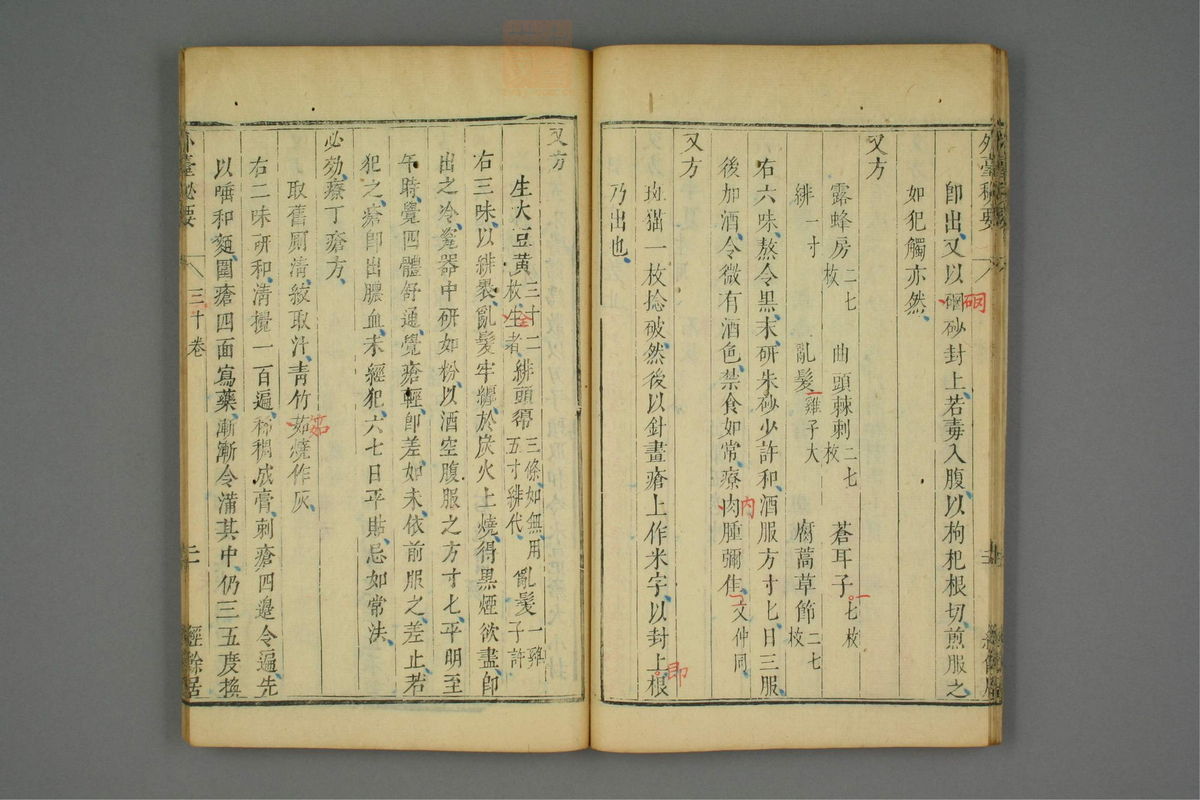 外臺秘要
卽出又以硇砂封上若毒入腹以枸杞根切煎服之
硇
如犯觸亦然
又方
露蜂房二七枚 曲頭棘刺二七枚 蒼耳子七枚
緋一寸 亂髮雞子大 腐蒿草節二七枚
右六味熬令黑末研朱砂少許和酒服方寸匕日三服
後加酒令微有酒色禁食如常療肉腫彌佳文仲同
內
又方
斑猫一枚捻破然後以針畫瘡上作米字以封上根
卽
乃出也
又方
生大豆黃三十二枚生者 緋頭帶三條如無用五寸緋代 亂髮一雞子許
全
右三味以緋裹亂髮牢纏於炭火上燒得黑煙欲盡卽
出之冷瓷器中研如粉以酒空腹服之方寸匕平明至
午時覺四體舒通覺瘡輕卽差如未依前服之差止若
犯之瘡卽出膿血未經犯六七日平貼忌如常法
必効療丁瘡方
取舊厠清絞取汁青竹茹燒作灰
茹
右二味研和清攪一百遍稀稠成膏刺瘡四邊令遍先
以唾和麵圍瘡四面寫藥漸漸令滿其中仍三五度換
外臺秘要 三十卷 二 經餘居